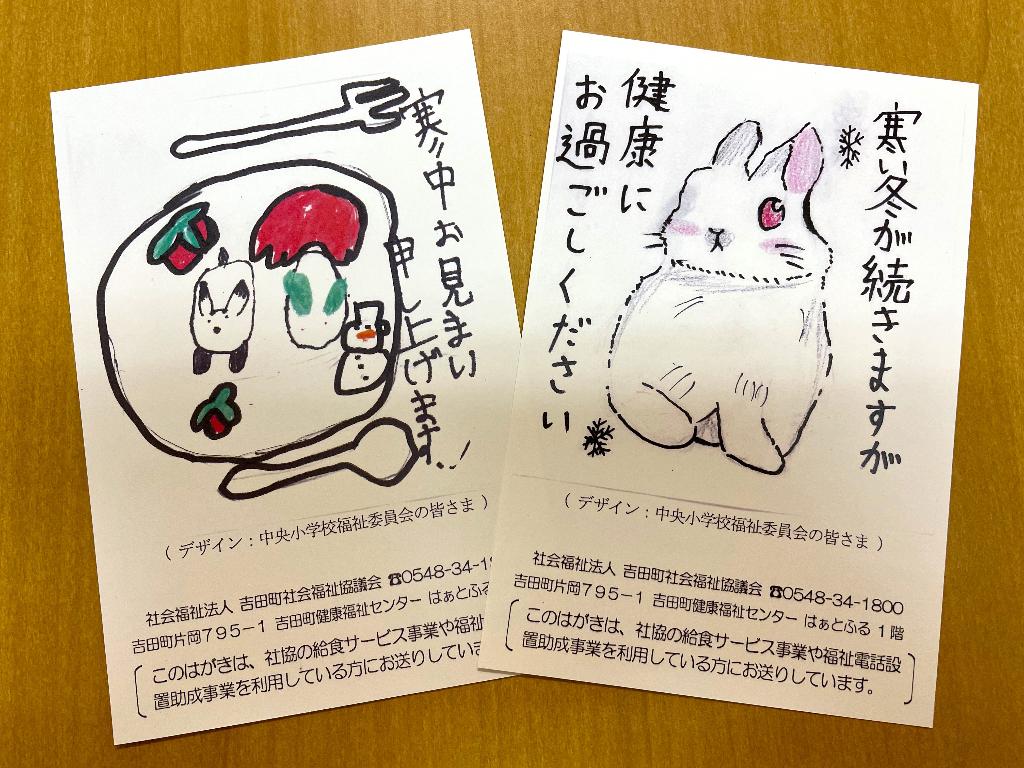 寒中お見まい
申し上げます!
(デザイン:中央小学校福祉委員会の皆さま)
社会福祉法人 吉田町社会福祉協議会 ☎0548-34-1
吉田町片岡795-1 吉田町健康福祉センター はぁとふる
このはがきは、社協の給食サービス事業や福祉
置助成事業を利用している方にお送りしていま
寒い冬が続きますが
健康に
お過ごしください
(デザイン:中央小学校福祉委員会の皆さま)
社会福祉法人 吉田町社会福祉協議会 ☎0548-34-1800
吉田町片岡795-1 吉田町健康福祉センター はぁとふる1階
このはがきは、社協の給食サービス事業や福祉電話設
置助成事業を利用している方にお送りしています。